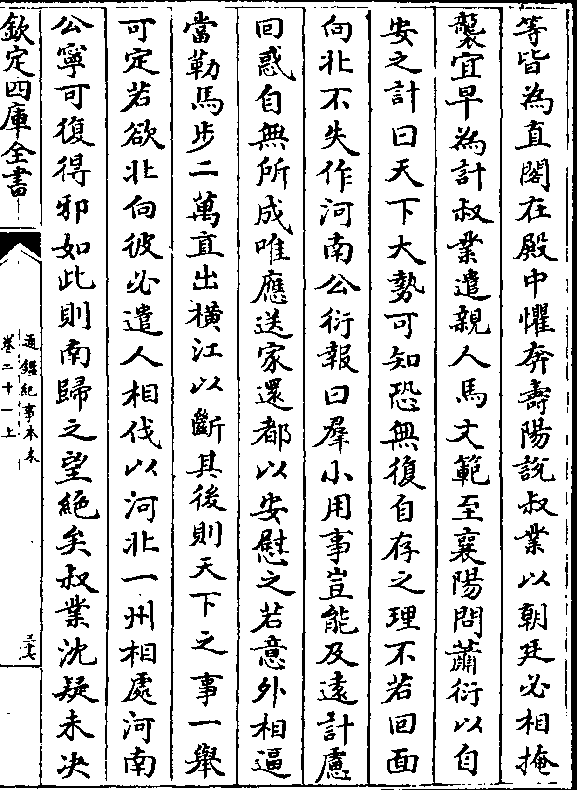 等皆為直閤在殿中懼奔壽陽說叔業以朝廷必相掩
襲宜早為計叔業遣親人馬文範至襄陽問蕭衍以自
安之計曰天下大勢可知恐無復自存之理不若回面
向北不失作河南公衍報曰羣小用事豈能及遠計慮
回惑自無所成唯應送家還都以安慰之若意外相逼
當勒馬步二萬直出横江以斷其後則天下之事一舉
可定若欲北向彼必遣人相代以河北一州相處河南
公寧可復得邪如此則南歸之望絶矣叔業沈疑未决
欽定四庫全書
通鑑紀事本末
卷二十一上
三七